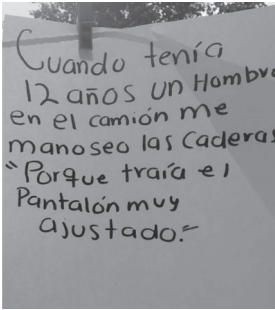 Cuando tenía
12 años un Hombre
en el camión me
manoseo las Caderas
"Porque traía el
Pantalón muy
ajustado."